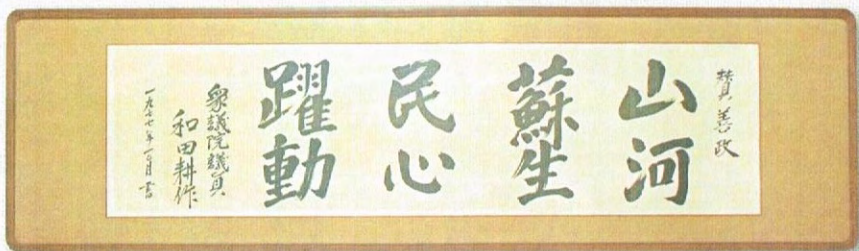 賛善政
山河
蘇生
民心
躍動
衆議院議員
和田耕作
一九七七年一月書